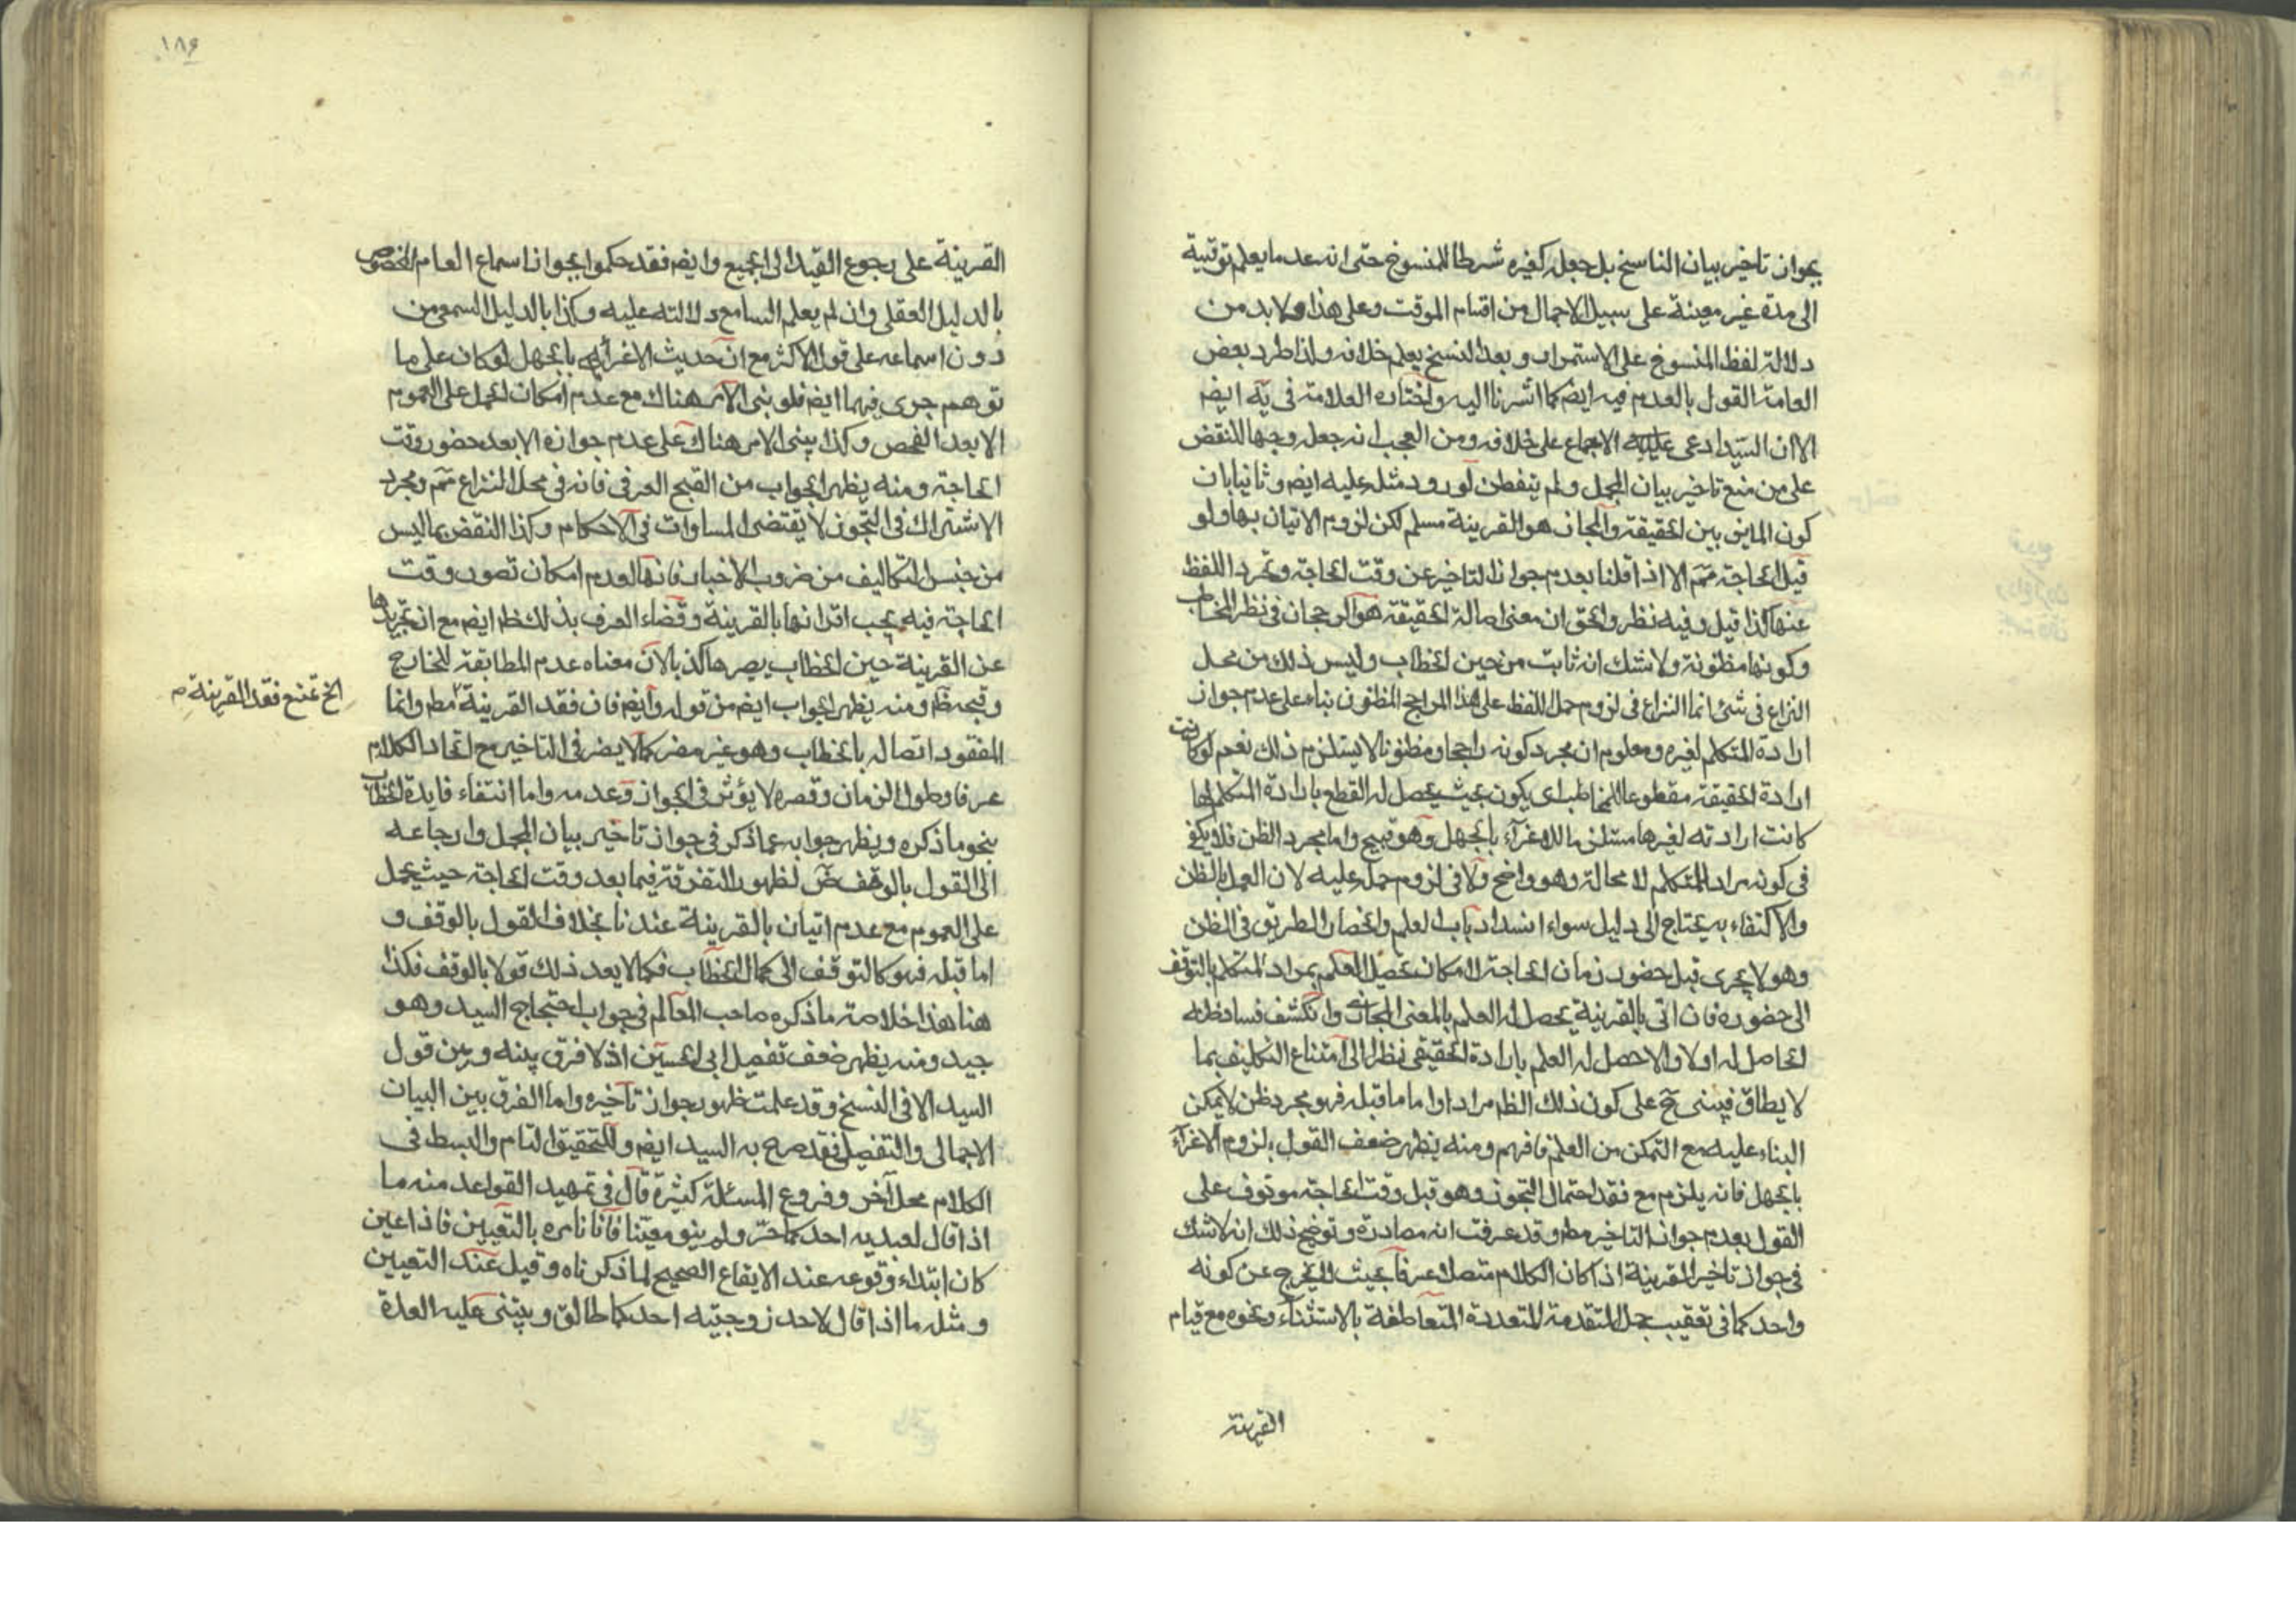 بجواز تاخير بيان الناسخ بل جعله كغيره شرطا للمنسوخ حتى انه عد ما يعلم توقيته
الى مدة غير معينة على سبيل الاجمال من اقسام الموقت وعلى هذا فلا بد من
دلالة لفظ المنسوخ على الاستمرار وبعد النسخ يعلم خلافه ولذا طرد بعض
العامة القول بالعدم فيه ايضا كما اشرنا اليه واختاره العلامة في يه ايضا
الا ان السيد ادعى عليه الاجماع على خلافه ومن العجب انه جعله وجها للنقض
على من منع تاخير بيان المجمل ولم يتفطن لورود مثله عليه ايضا وثانيا بان
كون المايز بين الحقيقة والمجاز هو القرينة مسلم لكن لزوم الاتيان بها ولو
قبل الحاجة مم الا اذا قلنا بعدم جواز التاخير عن وقت الحاجة وتجرد اللفظ
عنها كذا قيل وفيه نظر والحق ان معنى اصالة الحقيقة هو الرجحان في نظر المخاطب
وكونها مظنونة ولا شك انه ثابت من حين الخطاب وليس ذلك من محل
النزاع في شئ انما النزاع في لزوم حمل اللفظ على هذا الراجح المظنون بناء على عدم جواز
ارادة المتكلم لغيره ومعلوم ان مجرد كونه راجحا ومظنونا لا يستلزم ذلك نعم لو كانت
ارادة الحقيقة مقطوعا للمخاطب اى يكون بحيث يحصل له القطع بارادة المتكلم لها
كانت ارادته لغيرها مستلزما للاغرآء بالجهل وهو قبيح واما مجرد الظن فلا يكفى
في كونه مراد المتكلم لا محالة وهو واضح ولا في لزوم حمله عليه لان العمل بالظن
والاكتفاء به يحتاج الى دليل سواء انسداد باب العلم وانحصار الطريق في الظن
وهو لا يجرى قبل حضور زمان الحاجة لامكان تحصيل العلم بمراد المتكلم بالتوقف
الى حضوره فان اتى بالقرينة يحصل له العلم بالمعنى المجازى وانكشف فساد ظنه
الحاصل له اولا والا حصل له العلم بارادة الحقيقى نظرا الى امتناع التكليف بما
لا يطاق فيبنى ح على كون ذلك الظ مرادا واما ما قبله فهو مجرد ظن لا يمكن
البناء عليه مع التمكن من العلم فافهم ومنه يظهر ضعف القول بلزوم الاغرآء
بالجهل فانه يلزم مع فقد احتمال التجوز وهو قبل وقت الحاجة موقوف على
القول بعدم جواز التاخير مط وقد عرفت انه مصادرة وتوضيح ذلك انه لا شك
في جواز تاخير القرينة اذا كان الكلام متصلا عرفا بحيث لا يخرج عن كونه
واحد كما في تعقيب جمل المتقدمة المتعددة المتعاطفة بالاستثناء ونحوه مع قيام
القرينة
١٨٦
القرينة على رجوع القيد الى الجميع وايضا فقد حكموا بجواز اسماع العام المخصوص
بالدليل العقلى وان لم يعلم السامع دلالته عليه وكذا بالدليل السمعى من
دون اسماعه على قول الاكثر مع ان حديث الاغراء بالجهل لو كان على ما
توهم جرى فيهما ايضا فلو بنى الامر هناك مع عدم امكان الحمل على العموم
الا بعد الفحص وكذا يبنى الامر هناك على عدم جوازه الا بعد حضور وقت
الحاجة ومنه يظهر الجواب من القبح العرفى فانه في محل النزاع مم ومجرد
الاشتراك في التجوز لا يقتضى المساوات في الاحكام وكذا النقض بما ليس
من جنس التكاليف من ضروب الاخبار فانها لعدم امكان تصور وقت
الحاجة فيه يجب اقترانها بالقرينة وقضاء العرف بذلك ظ ايضا مع ان تجريدها
عن القرينة حين الخطاب يصرها كذبا لان معناه عدم المطابقة للخارج
وقبحه ظ ومنه يظهر الجواب ايضا من قوله وايضا فان فقد القرينة مط وانما
الخ تمنع فقد القرينة م
المفقود اتصاله بالخطاب وهو غير مضر كما لا يضر في التاخير مع اتحاد الكلام
عرفا وطول الزمان وقصره لا يؤثر في الجواز وعدمه واما انتفاء فايدة الخطاب
بنحو ما ذكره ويظهر جوابه عما ذكر في جواز تاخير بيان المجمل وارجاعه
الى القول بالوقف لظهور التفرقة فيما بعد وقت الحاجة حيث يحمل
على العموم مع عدم اتيان بالقرينة عندنا بخلاف القول بالوقف و
اما قبله فهو كالتوقف الى كمال الخطاب فكما لا يعد ذلك قولا بالوقف فكذا
هنا هذا خلاصة ما ذكره صاحب المعالم في جواب احتجاج السيد وهو
جيد ومنه يظهر ضعف تفصيل ابى الحسين اذ لا فرق بينه وبين قول
السيد الا في النسخ وقد علمت ظهور جواز تاخيره واما الفرق بين البيان
الاجمالى والتفصيلى فقد صرح به السيد ايضا وللتحقيق التام والبسط في
الكلام محل آخر وفروع المسئلة كثيرة قال في تمهيد القواعد منه ما
اذا قال لعبديه احدكما حر ولم ينو معينا فانا نامره بالتعيين فاذا عين
كان ابتداء وقوعه عند الايقاع الصحيح لما ذكرناه وقيل عند التعيين
ومثله ما اذا قال لاحد زوجتيه احدكما طالق ويبتنى عليه العدة